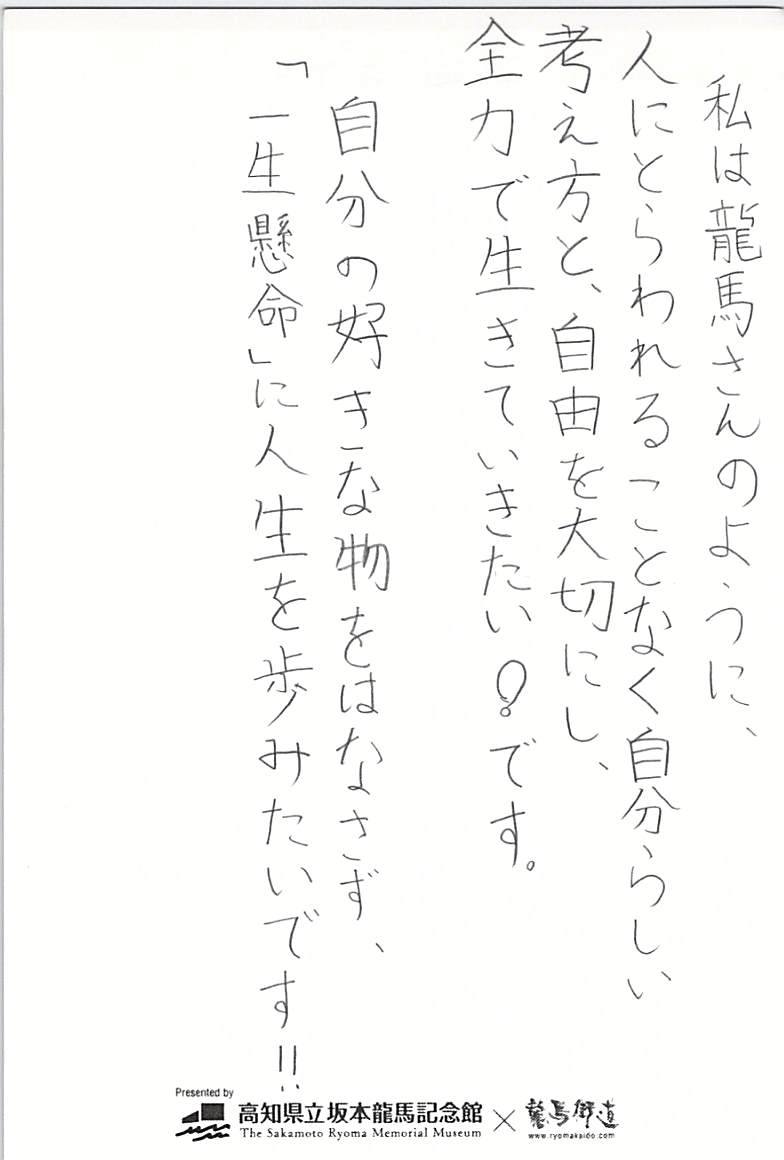 私は龍馬さんのように、
人にとらわれることなく自分らしい
考え方と、自由を大切にし、
全力で生きていきたい!です。
自分の好きな物をはなさず、
「一生懸命」に人生を歩みたいです!!
Presented by
高知県立坂本龍馬記念館 × 龍馬街道
The Sakamoto Ryoma Memorial Museum
www.ryomakaido.com